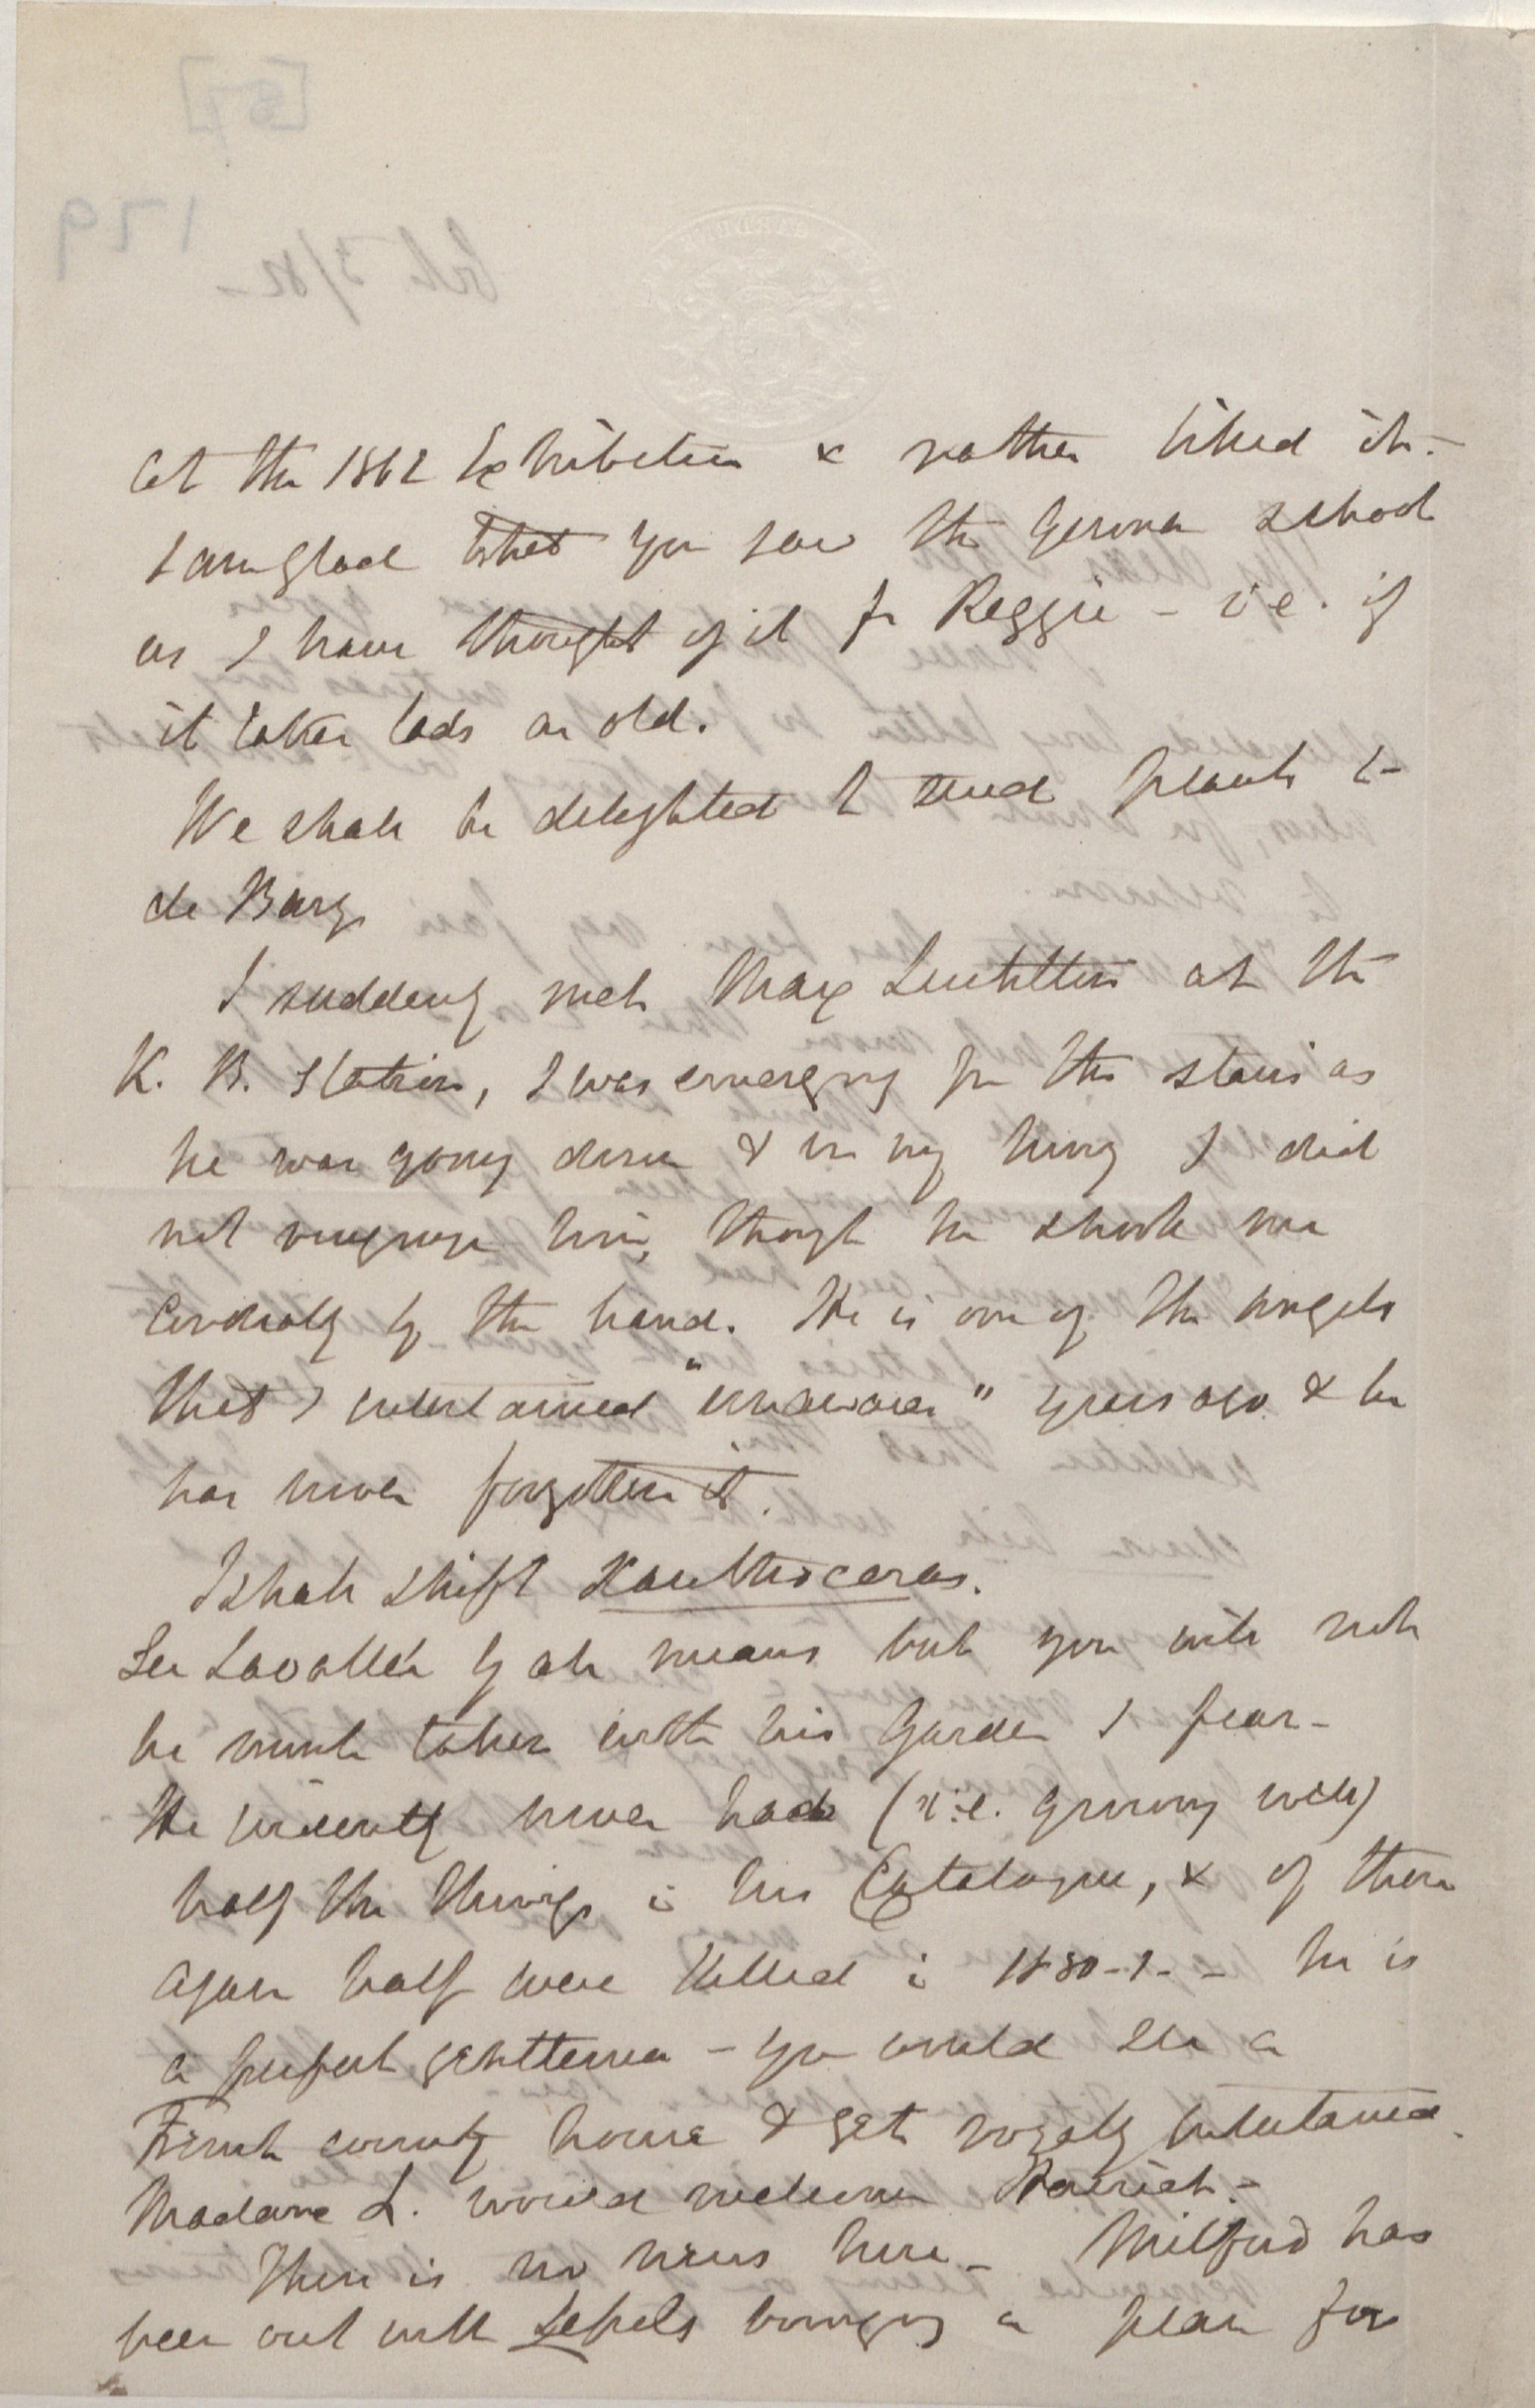 at the 1862 Exhibition & rather liked it. –
I am glad that you saw the Geneva school
as I have thought of it for Reggie – i.e. if
it takes lads as old.
We shall be delighted to send plants to
de Bary
I suddenly met Max at the
K. B. Station, I was emerging from the stairs as
he was going down & in my hurry I did
not recognize him, though he shook me
cordially by the hand. He is one of the angels
that I entertained "unawares" years ago & he
has never forgotten it.
I shall shift Xanthoceras.
See Lavallée by all means but you will not
be much taken with his Garden I fear –
He evidently never had (i.e. growing well)
half the things in his Catalogue, & of them
again half were killed in 1880-1. – he is
a perfect gentleman – you would see a
French country house & get royally entertained.
Madame L. would welcome Harriet. –
There is no news here – Milford has
been out with bringing a plan for